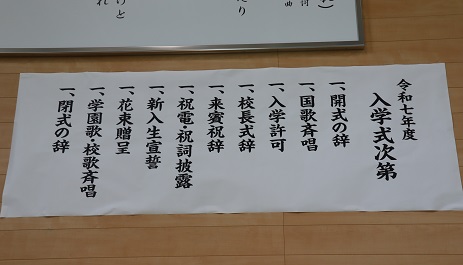 令和七年度
入学式次第
一、開式の辞
一、国歌斉唱
一、入学許可
一、校長式辞
一、来賓祝辞
一、祝電・祝詞披露
一、新入生宣誓
一、花束贈呈
一、学園歌・校歌斉唱
一、閉式の辞